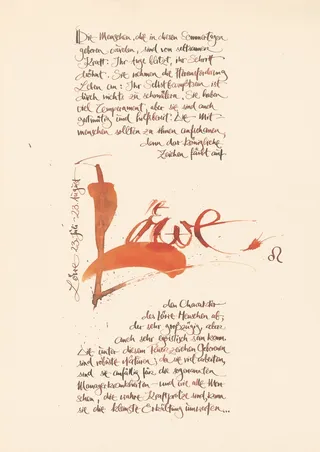 Die Menschen, die in diesen Sommertagen
geboren wurden, sind von seltsamer
Kraft: Ihr Auge blitzt, ihr Schritt
dröhnt. Sie nehmen die Herausforderung
Leben an: Ihr Selbstbewußtsein ist
durch nichts zu schmälern. Sie haben
viel Temperament, aber sie sind auch
gutmütig und hilfsbereit. Die Mit-
menschen sollten zu ihnen aufschauen,
denn das königliche
Zeichen färbt auf
Löwe 23. Juli - 23. August
Löwe
♌
den Charakter
des Löwe Menschen ab,
der sehr großzügig, aber
auch sehr egoistisch sein kann.
Die unter diesem Feuerzeichen Geborenen
sind robuste Naturen; da sie viel arbeiten,
sind sie anfällig für die sogenannten
Managerkrankheiten - und wie alle Men-
schen, die wahre Kraftprotze sind, kann
sie die kleinste Erkältung umwerfen...